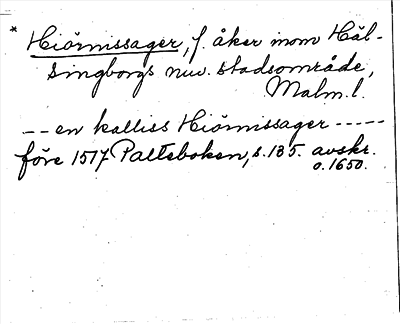 * Hiörnissager, f. åker inom Häl-
singborgs nuv. stadsområde,
Malm.l.
-- en kalliss Hiörnissager -----
före 1517 Palteboken, s. 135. avskr.
o. 1650.